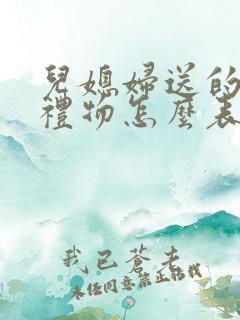 兒媳婦送的
禮物怎麼表
我已蒼老
未經同意禁止轉載